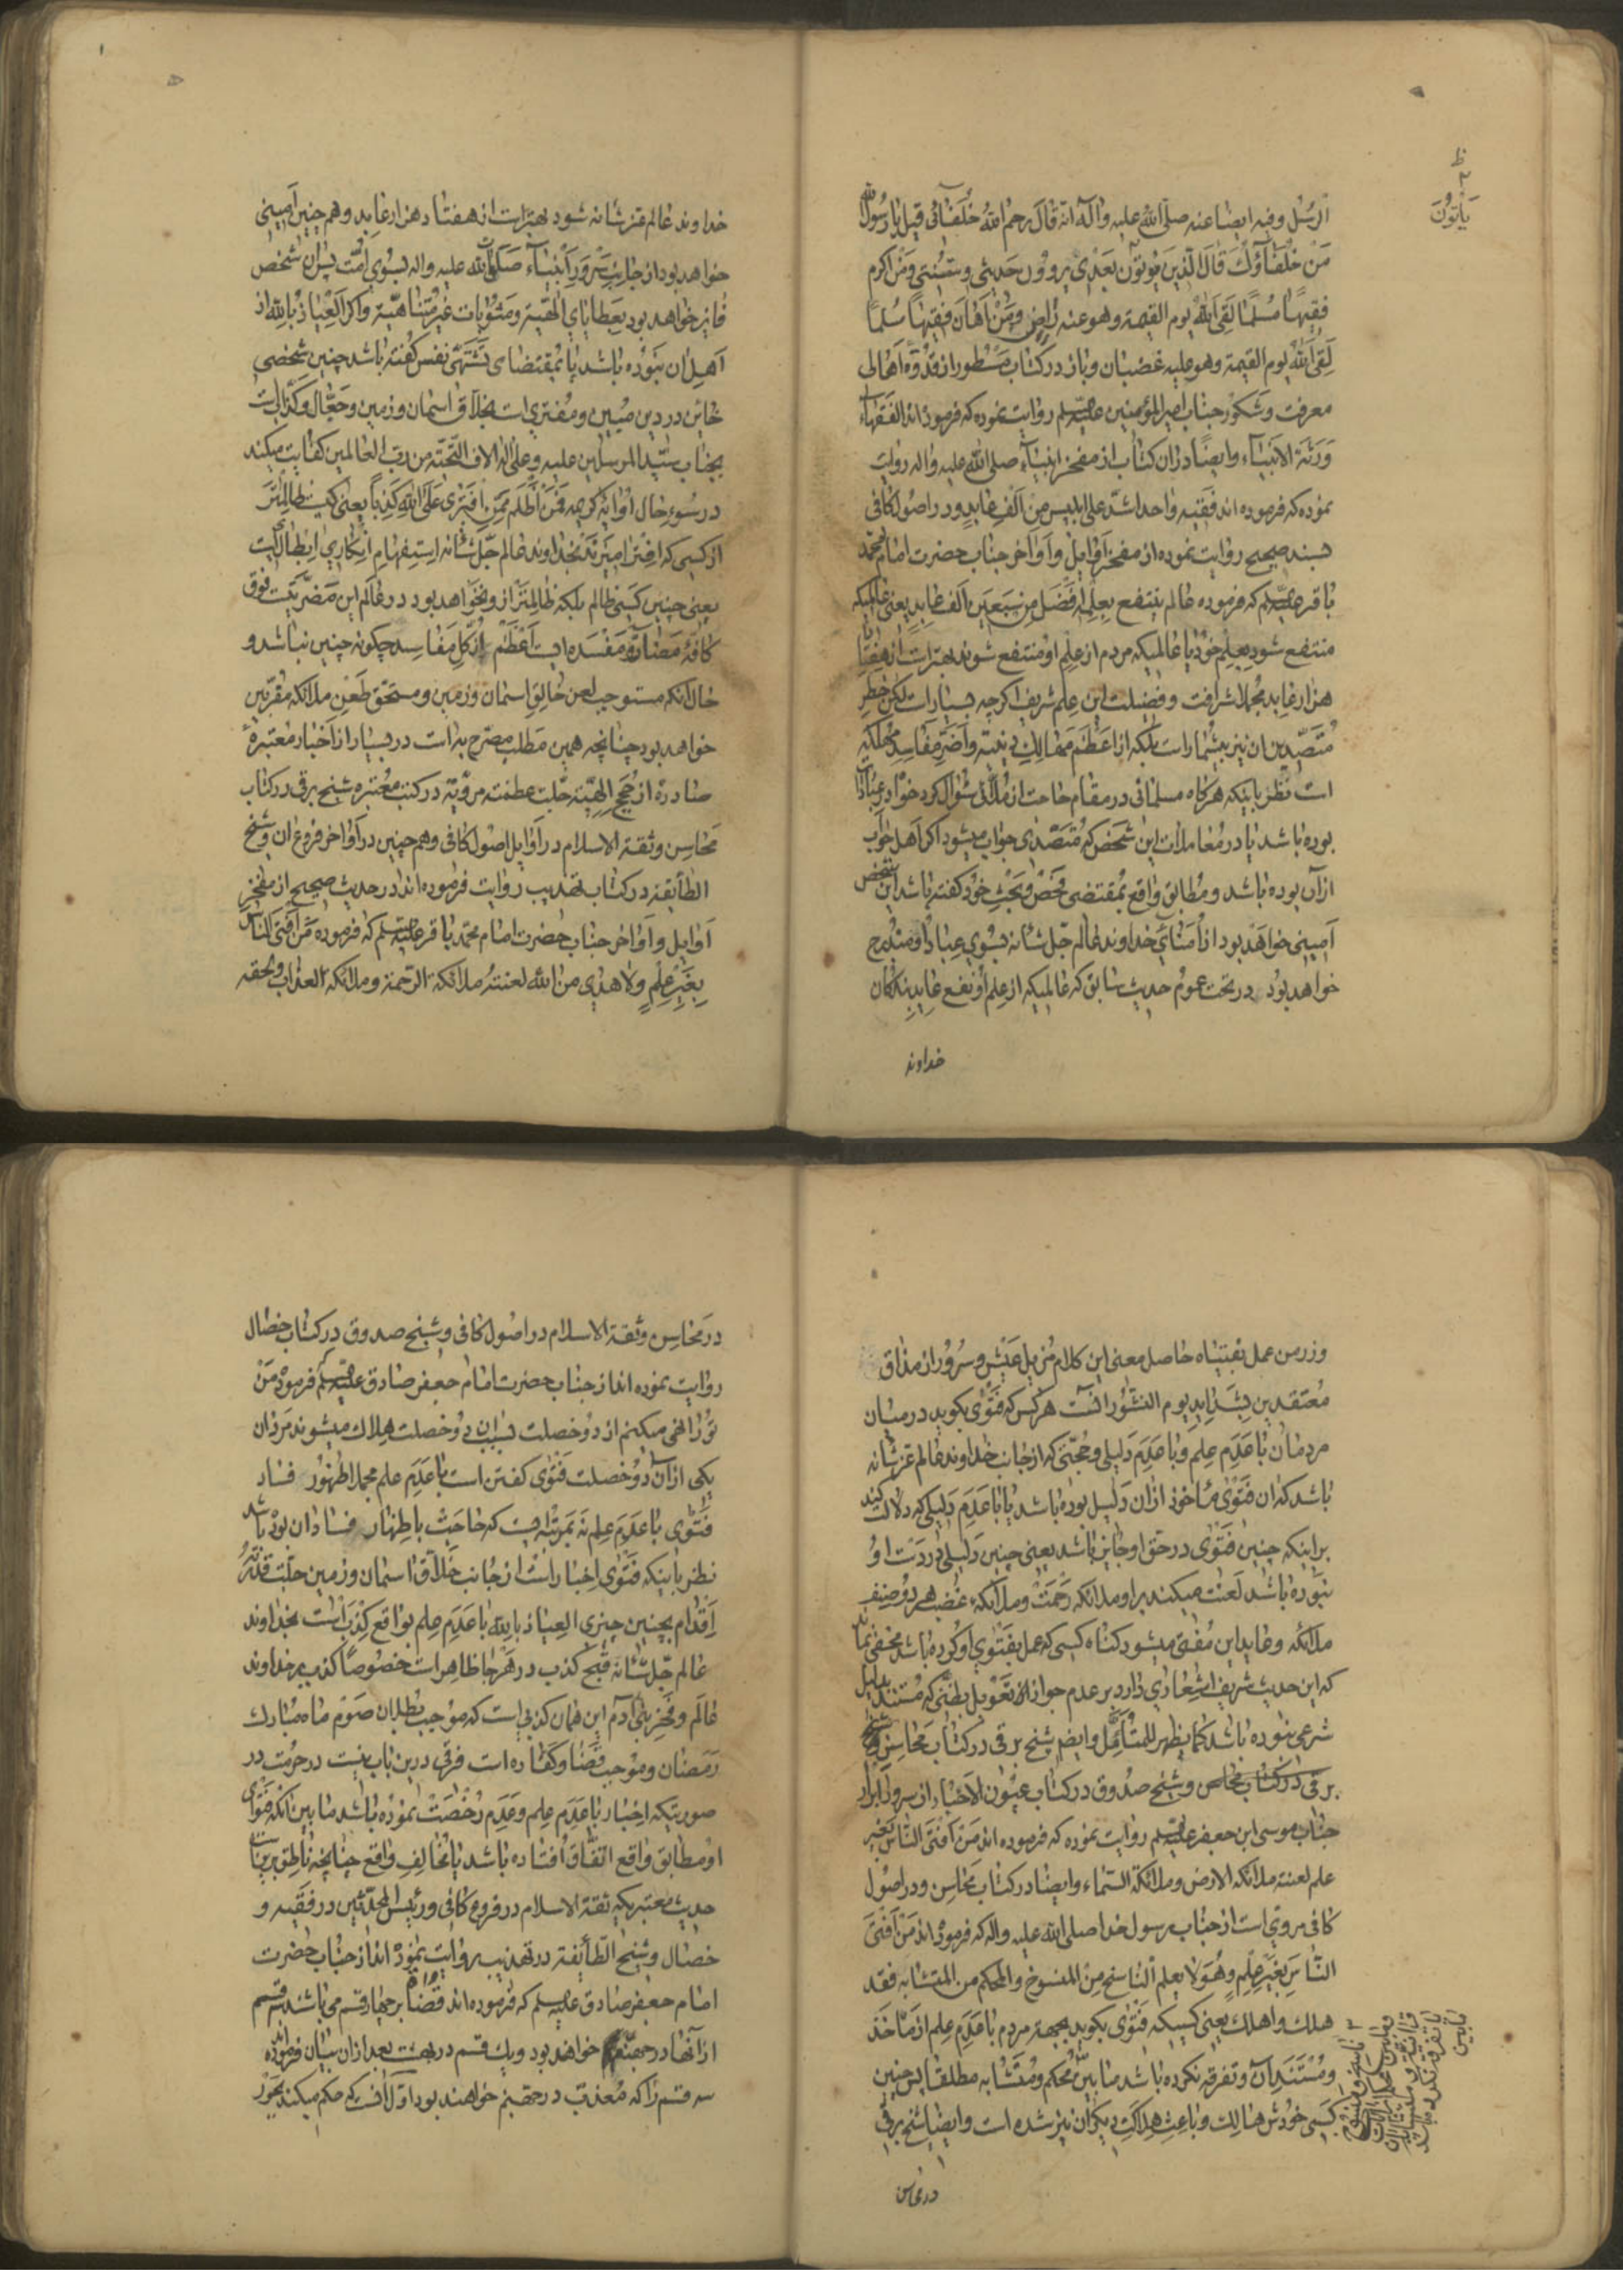 الرسل وفيه ايضا عنه صلى الله عليه واله انّه قال رحم الله خلفائى قيل يا رسول الله
مَنْ خلفآؤك قال الّذين يؤتون بعدى يروون حديثى وسنّتى ومَنْ اكرم
فقيهًا مُسلمًا لقى الله يوم القيمة وهو عنه راضٍ ومَنْ اهان فقيهًا مسلمًا
لقى الله يوم القيمة وهو عليه غضبان وباز در كتاب مسطور از قدوهٔ اهالى
معرفت وشكور جناب امير المؤمنين عليه السلم روايت نموده كه فرموده اند الفقهاء
ورثة الانبياء وايضًا در ان كتاب از مفخر انبياء صلى الله عليه واله روايت
نموده كه فرموده اند فقيه واحد اشدّ على ابليس من الف عابدٍ ودر اصول كافى
بسند صحيح روايت نموده از مفخر اوايل واواخر جناب حضرت امام محمّد
باقر عليه السلم كه فرموده عالم ينتفع بعلمه افضل من سبعين الف عابدٍ يعنى عالميكه
منتفع شود بعلم خود يا عالميكه مردم از علم او منتفع شوند بهتر است از هفتاد
هزار عابد مجملا شرافت وفضيلت اين علم شريف اگر چه بسيار است لكن خطرِ
مُتصدّيينِ ان نيز بيشمار است بلكه از اعظم مهالك دينيّه واضرّ مفاسد مهلكه
است نظر باينكه هرگاه مسلمانى در مقام حاجت از مُلّائى سؤال كرد خواه در عبادات
بوده باشد يا در معاملات اين شخص كه مُتصدّى جواب ميشود اگر اهل جواب
ازآن بوده باشد ومُطابق واقع بمُقتضى فحص وبحث خود گفته باشد اين شخص
امينى خواهد بود از اُمنآى خداوند عالم جلّ شانه بسوى عباد او ومندرج
خواهد بود در تحت عموم حديث سابق كه عالميكه از علم او نفع عايد بندگان
خداوند
ظ
ياتون
خداوند عالم عزّ شانه شود بهتر است از هفتاد هزار عابد وهم چنين امينى
خواهد بود از جانب سرور انبيآء صلوات الله عليه واله بسوى امّت پس ان شخص
فايز خواهد بود بعطاياى الهيّة ومثوبات غير متناهيّة واگر العياذ بالله از
اهل ان نبوده باشد يا بمقتضاى تشهّى نفس گفته باشد چنين شخصى
خائن در دين مبين ومُفترى است بخلّاق اسمان وزمين وجعّال وكذّاب است
بجناب سيّد المرسلين عليه وعلى اله الاف التّحيّة من ربّ العالمين كفايت ميكند
در سوء حال او آيهٔ كريمه فمن اظلم ممّن افترى على الله كذبًا يعنى كيست ظالمتر
از كسى كه افترا ميبرند بخداوند عالم جلّ شانه استفهام انكارى ابطالى است
يعنى چنين كسى ظالم بلكه ظالمتر ازو نخواهد بود در عالم اين مضرّتيست فوق
كافّهٔ مضارّ ومفسده ايست اعظم از كلّ مفاسد چگونه چنين نباشد و
حال آنكه مستوجب لعن خالق اسمان وزمين ومستحقّ طعن ملائكهٔ مقرّبين
خواهد بود چنانچه همين مطلب مصرّح به است در بسيار از اخبار معتبرهٔ
صادرهٔ از حجج الهيّة جلّت عظمته مرويّة در كتب معتبره شيخ برقى در كتاب
محاسن وثقة الاسلام در اوايل اصول كافى وهم چنين در اواخر فروع ان وشيخ
الطّائفة در كتاب تهذيب روايت فرموده اند در حديث صحيح از مفخر
اوايل واواخر جناب حضرت امام محمّد باقر عليه السلم كه فرموده مَن افتى النّاس
بغير علمٍ ولا هدى من الله لعنته ملائكة الرّحمة وملائكة العذاب ولحقه
وزر من عمل بفتياه حاصل معنى اين كلام مُزيل عيش وسُرور از مذاق
مُعتقدين بشدايد يوم النّشور انست هر كس كه فتوى بگويد در ميان
مردمان با عدم علم وبا عدم دليلى وحُجّتى كه از جانب خداوند عالم عزّ شانه
باشد كه ان فتوى مأخوذ از ان دليل بوده باشد يا با عدم دليلى كه دلالت كند
بر اينكه چنين فتوى در حقّ او جايز باشد يعنى چنين دليلى در دست او
نبوده باشد لعنت ميكند بر او ملائكهٔ رحمت وملائكهٔ غضب هر دو صنف
ملائكه وعايد اين مُفتى ميشود گناه كسى كه عمل بفتوى او كرده باشد مخفى نماند
كه اين حديث شريف اشعارى دارد بر عدم جواز تعويل بظنّى كه مُستند بدليل
شرعى نبوده باشد كما يظهر للمتأمّل وايضا شيخ برقى در كتاب محاسن
برقى در كتاب محاسن وشيخ صدوق در كتاب عيون الاخبار از سرور ابرار
جناب موسى ابن جعفر عليه السلم روايت نموده كه فرموده اند مَنْ افتى النّاس بغير
علم لعنته ملائكة الارض وملائكة السّماء وايضا در كتاب محاسن ودر اصول
كافى مروى است از جناب رسول خدا صلى الله عليه واله كه فرموده اند مَنْ افتى
النّاس بغير علمٍ وهو لا يعلم النّاسخ من المنسوخ والمحكم من المتشابه فقد
هلك واهلك يعنى كسيكه فتوى بگويد بجهة مردم با عدم علم از مأخذ
ومُستند ان وتفرقه نكرده باشد مابين محكم ومُتشابه مطلقا پس چنين
كسى خودش هالك وباعث هلاكت ديگران نيز شده است وايضا شيخ برقى
در محاسن
در محاسن وثقة الاسلام در اصول كافى وشيخ صدوق در كتاب خصال
روايت نموده اند از جناب حضرت امام جعفر صادق عليه السلم فرمود من
تو را نهى ميكنم از دو خصلت بسبب ان دو خصلت هلاك ميشوند مردان
يكى از ان دو خصلت فتوى گفتن است با عدم علم مجملا ظهور فساد
فتوى با عدم علم نه بمرتبه ايست كه حاجت باظهار فساد ان بوده باشد
نظر باينكه فتوى اخبار است از جانب خلّاق اسمان وزمين جلّت قدرته
اقدام بچنين چيزى العياذ بالله با عدم علم بواقع كذب است بخداوند
عالم جلّ شانه قبح كذب در هر جا ظاهر است خصوصًا كذب بر خداوند
عالم وفخر بنى آدم اين همان كذبى است كه موجب بطلان صوم ماه مبارك
رمضان وموجب قضا وكفّاره است فرقى درين باب نيست در حرمت در
صورتيكه اخبار با عدم علم وعدم رُخصت نموده باشد مابين آنكه فتواى
او مطابق واقع اتّفاق افتاده باشد يا مخالف واقع چنانچه ناطق برين است
حديث معتبريكه ثقة الاسلام در فروع كافى ورئيس المحدّثين در فقيه و
خصال وشيخ الطّائفة در تهذيب روايت نموده اند از جناب حضرت
امام جعفر صادق عليه السلم كه فرموده اند قضاة بر چهار قسم مى باشند سه قسم
از آنها در جهنّم خواهد بود ويك قسم در بهشت بعد ازان بيان فرموده
سه قسم را كه مُعذّب در جهنّم خواهند بود اوّل آنست كه حكم ميكند بجور